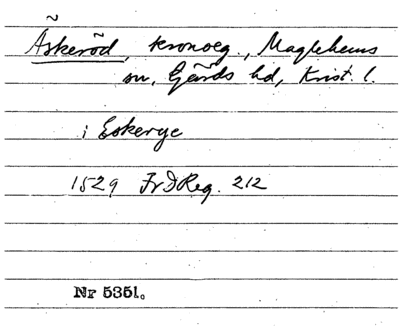 Åskeröd, kronoeg., Maglehems
sn, Gärds hd, Krist. l.
i Eskerye
1529 FrDReg. 212
Nr 5351.